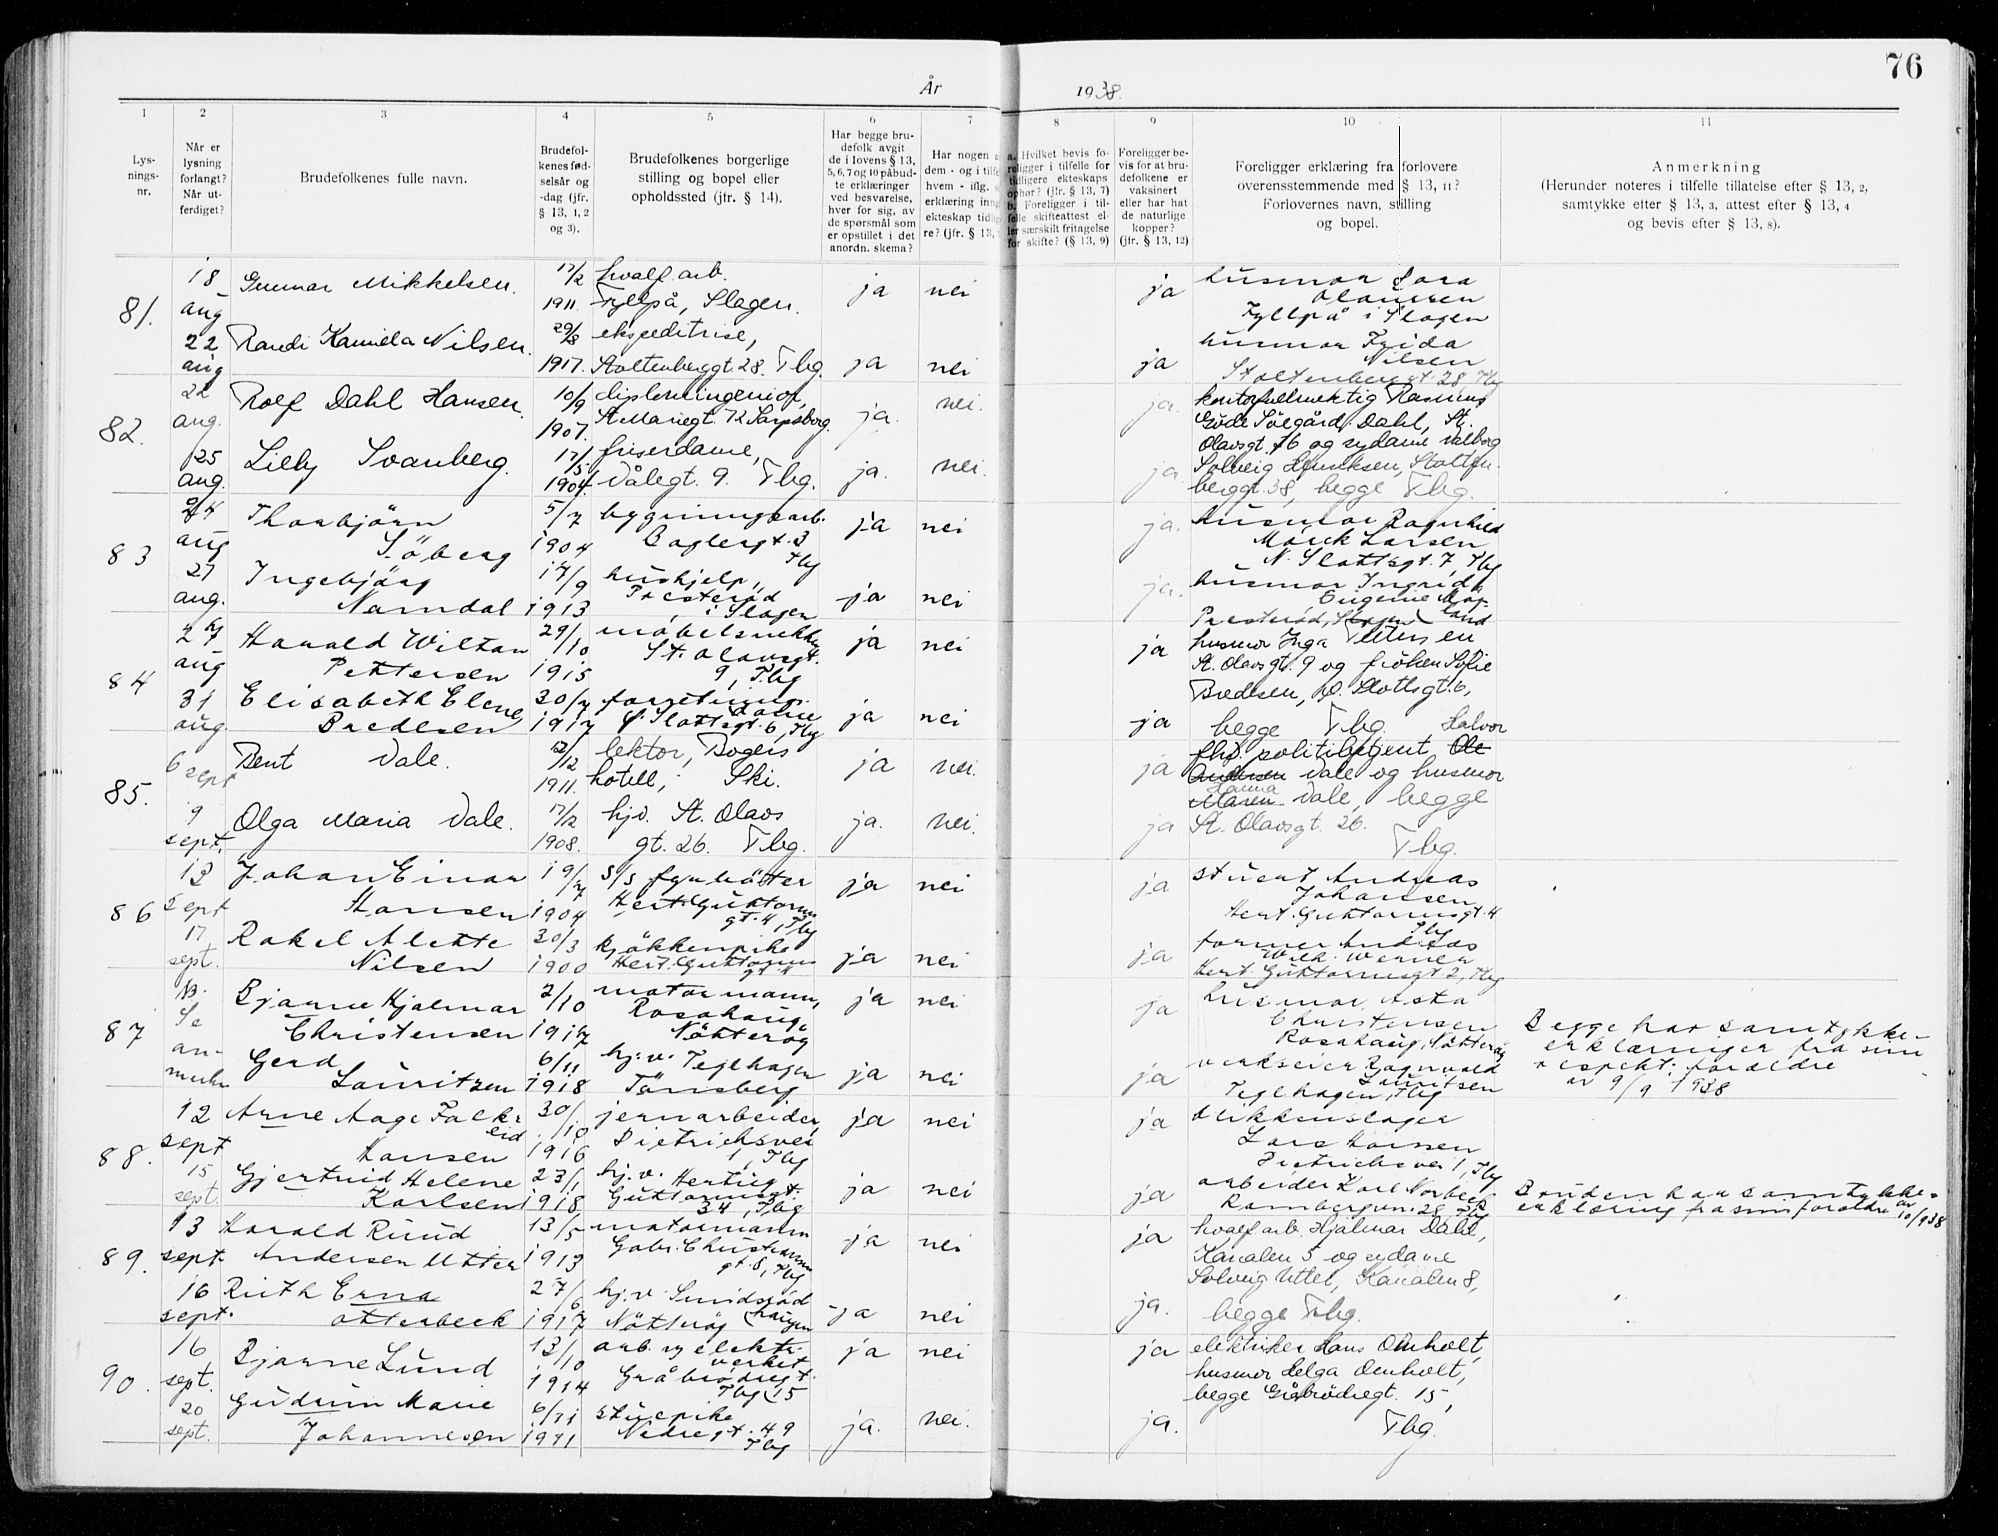 76
År 1938.
1 2 3 4 5 6 7 8 9 10 11
Lys-
nings-
nr.
Når er
lysning
forlangt?
Når ut-
ferdiget?
Brudefolkenes fulle navn.
Brudefol-
kenes fød-
selsår og
-dag (jfr.
§ 13, 1, 2
og 3).
Brudefolkenes borgerlige
stilling og bopel eller
opholdssted (jfr. § 14).
Har begge bru-
defolk avgit
de i lovens § 13,
5, 6, 7 og 10 påbud-
te erklæringer
ved besvarelse,
hver for sig, av
de spørsmål som
er opstillet i det
anordn. skema?
Har nogen a
dem - og i tilfe
hvem - iflg. s
erklæring inng
ekteskap tidlig
re? (jfr. § 13,
a. Hvilket bevis fo-
religger i tilfelle for
tidligere ekteskaps
ophør? (jfr. § 13, 7)
b. Foreligger i til-
felle skifteattest el-
ler særskilt fritagelse
for skifte? (§ 13, 9)
Foreligger be-
vis for at bru-
defolkene er
vaksinert
eller har hat
de naturlige
kopper?
(jfr. § 13, 12)
Foreligger erklæring fra forlovere
overensstemmende med § 13, 11?
Forlovernes navn, stilling
og bopel.
Anmerkning
(Herunder noteres i tilfelle tillatelse efter § 13, 2,
samtykke efter § 13, 3, attest efter § 13, 4
og bevis efter § 13, 8).
81.
18 aug
Gunnar Mikkelsen.
17/2 1911.
hvalf. arb.
Fyllpå, Slagen.
ja nei ja
husmor Lara
Olaussen
Fyllpå i Slagen
22 aug
Randi Kamilla Nilsen.
29/8 1917.
ekspeditrise,
Stoltenberggt. 28. Tbg.
ja nei ja
husmor Frida
Nilsen
Stoltenberggt. 28, Tbg
82.
22 aug.
Rolf Dahl Hansen.
10/9 1907.
diplomingeniør,
St. Mariegt. 72 Sarpsborg.
ja. nei. ja.
kontorfullmektig Rasmus
Gude Solgård Dahl, St.
Olavsgt. 76 og sydame Valborg
Solveig Henriksen, Stolten-
berggt. 38, begge Tbg.
25 aug.
Lilly Svanberg.
17/5 1904.
friserdame,
Dålegt. 9. Tbg.
ja. nei. ja.
83
24 aug
Thorbjörn
Söberg
5/7 1904
bygningsarb.
Baglergt. 3
Tbg
ja nei ja.
husmor Ragnhild
Mörck Larsen
N. Slottsgt. 7, Tbg
27 aug.
Ingebjörg
Namdal
14/9 1913
hushjelp,
Presteröd
i Slagen
ja nei ja.
husmor Ingrid
Eugenie Möy-
land
Presteröd, Slagen
84
27 aug
Harald Wiltan
Pettersen
29/10 1915
möbelsnekker
St. Olavsgt.
9, Tbg
ja nei ja
husmor Inga Pettersen
St. Olavsgt. 9 og fröken Sofie
Bredesen, Ö. Slottsgt. 6,
begge Tbg.
31 aug.
Elisabeth Elene
Bredesen
30/7 1917
forretnings-
dame
Ö. Slottsgt. 6, Tbg
ja nei ja
85.
6 sept
Bent Dale.
12/12 1911.
lektor, Bogers
hotell, Ski.
ja nei. ja
Halvor
fhv. politibetjent Ole
Andersen Dale og husmor
Hanna
Maren Dale, begge
St. Olavsgt. 26.
Tbg.
9 sept.
Olga Maria Dale.
17/2 1908.
hjv. St. Olavs
gt. 26. Tbg.
ja. nei. ja.
86
13 sept
Johan Einar
Hansen
19/7 1904
s/s fyrböter
Hert. Guttorms
gt. 4, Tbg
ja nei ja
stuert Andreas
Johansen
Hert. Guttormsgt. 4
Tbg
17 sept.
Rakel Alette
Nilsen
30/3 1900
kjökkenpike
Hert. Guttorms
gt. 4
ja nei ja
former Andreas
Wilh. Werner
Hert. Guttormsgt. 2, Tbg
87
Se
an-
merkn
Bjarne Hjalmar
Christensen
2/10 1917
motormann,
Rosahaug,
Nötteröy
ja nei ja
husmor Asta
Christensen
Rosahaug, Nötteröy
Gerd
Lauritzen
6/11 1918
hj.v. Teglhagen
Tönsberg
ja nei ja
verkseier Ragnvald
Lauritsen
Teglhagen, Tbg
Begge har samtykke-
erklæringer fra sine
respekt. foreldre
av 9/9 1938
88.
12 sept
Arne Aage Falk-
eid
Hansen
30/10 1916
jernarbeider
Dietrichsvei
1, Tbg
ja nei ja
blikkenslager
Lars Hansen
Dietrichsvei 1, Tbg
15 sept.
Gjertrud Helene
Karlsen
23/1 1918
hj.v. Hertug
Guttormsgt.
34, Tbg
ja nei ja
arbeider Karl Norbeck
Rambergvn. 28 Tbg
Bruden har samtykke-
erklæring fra sin foreldre av 10/9 38
89.
13 sept.
Harald Ruud
Andersen Utter
13/5 1913
motormann
Gabr. Christensens
gt. 8, Tbg
ja nei ja
hvalf. arb. Hjalmar Dahl,
Kanalen 5 og sydame
Solveig Uttet, Kanalen 8,
begge Tbg.
16 sept.
Ruth Erna
Otterbeck
27/6 1917
hj.v. Smidsröd
haugen
Nötteröy
ja nei ja.
90.
16 sept.
Bjarne Lund
13/10 1914
arb. v/ elektr.
verket
Gråbrödregt.
Tbg 15
ja nei ja
elektriker Hans Omholt,
husmor Helga Omholt,
begge Gråbrödregt. 15,
Tbg.
20 sept.
Gudrun Marie
Johannesen
6/11 1911
stuepike
Nedregt. 49
Tbg
ja. nei. ja.